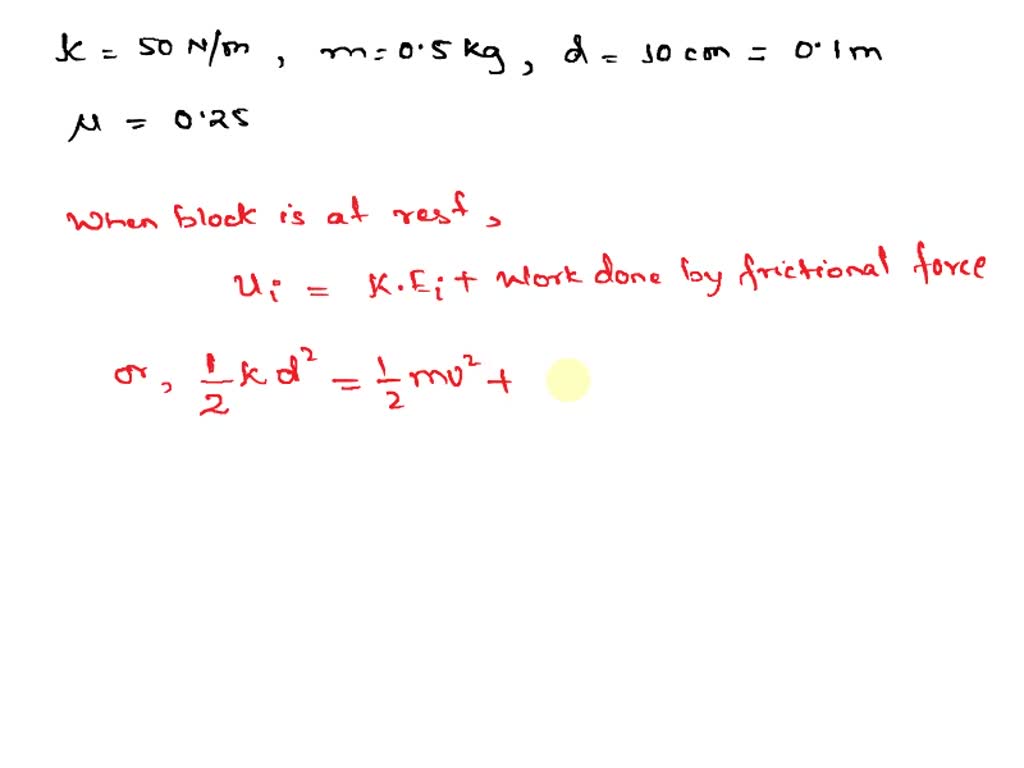 k = 50 N/m, m = 0.5 kg, d = 10 cm = 0.1 m
μ = 0.25
When block is at rest,
Ui = K.Ei + Work done by frictional force
or, 1/2 k d² = 1/2 mv² +